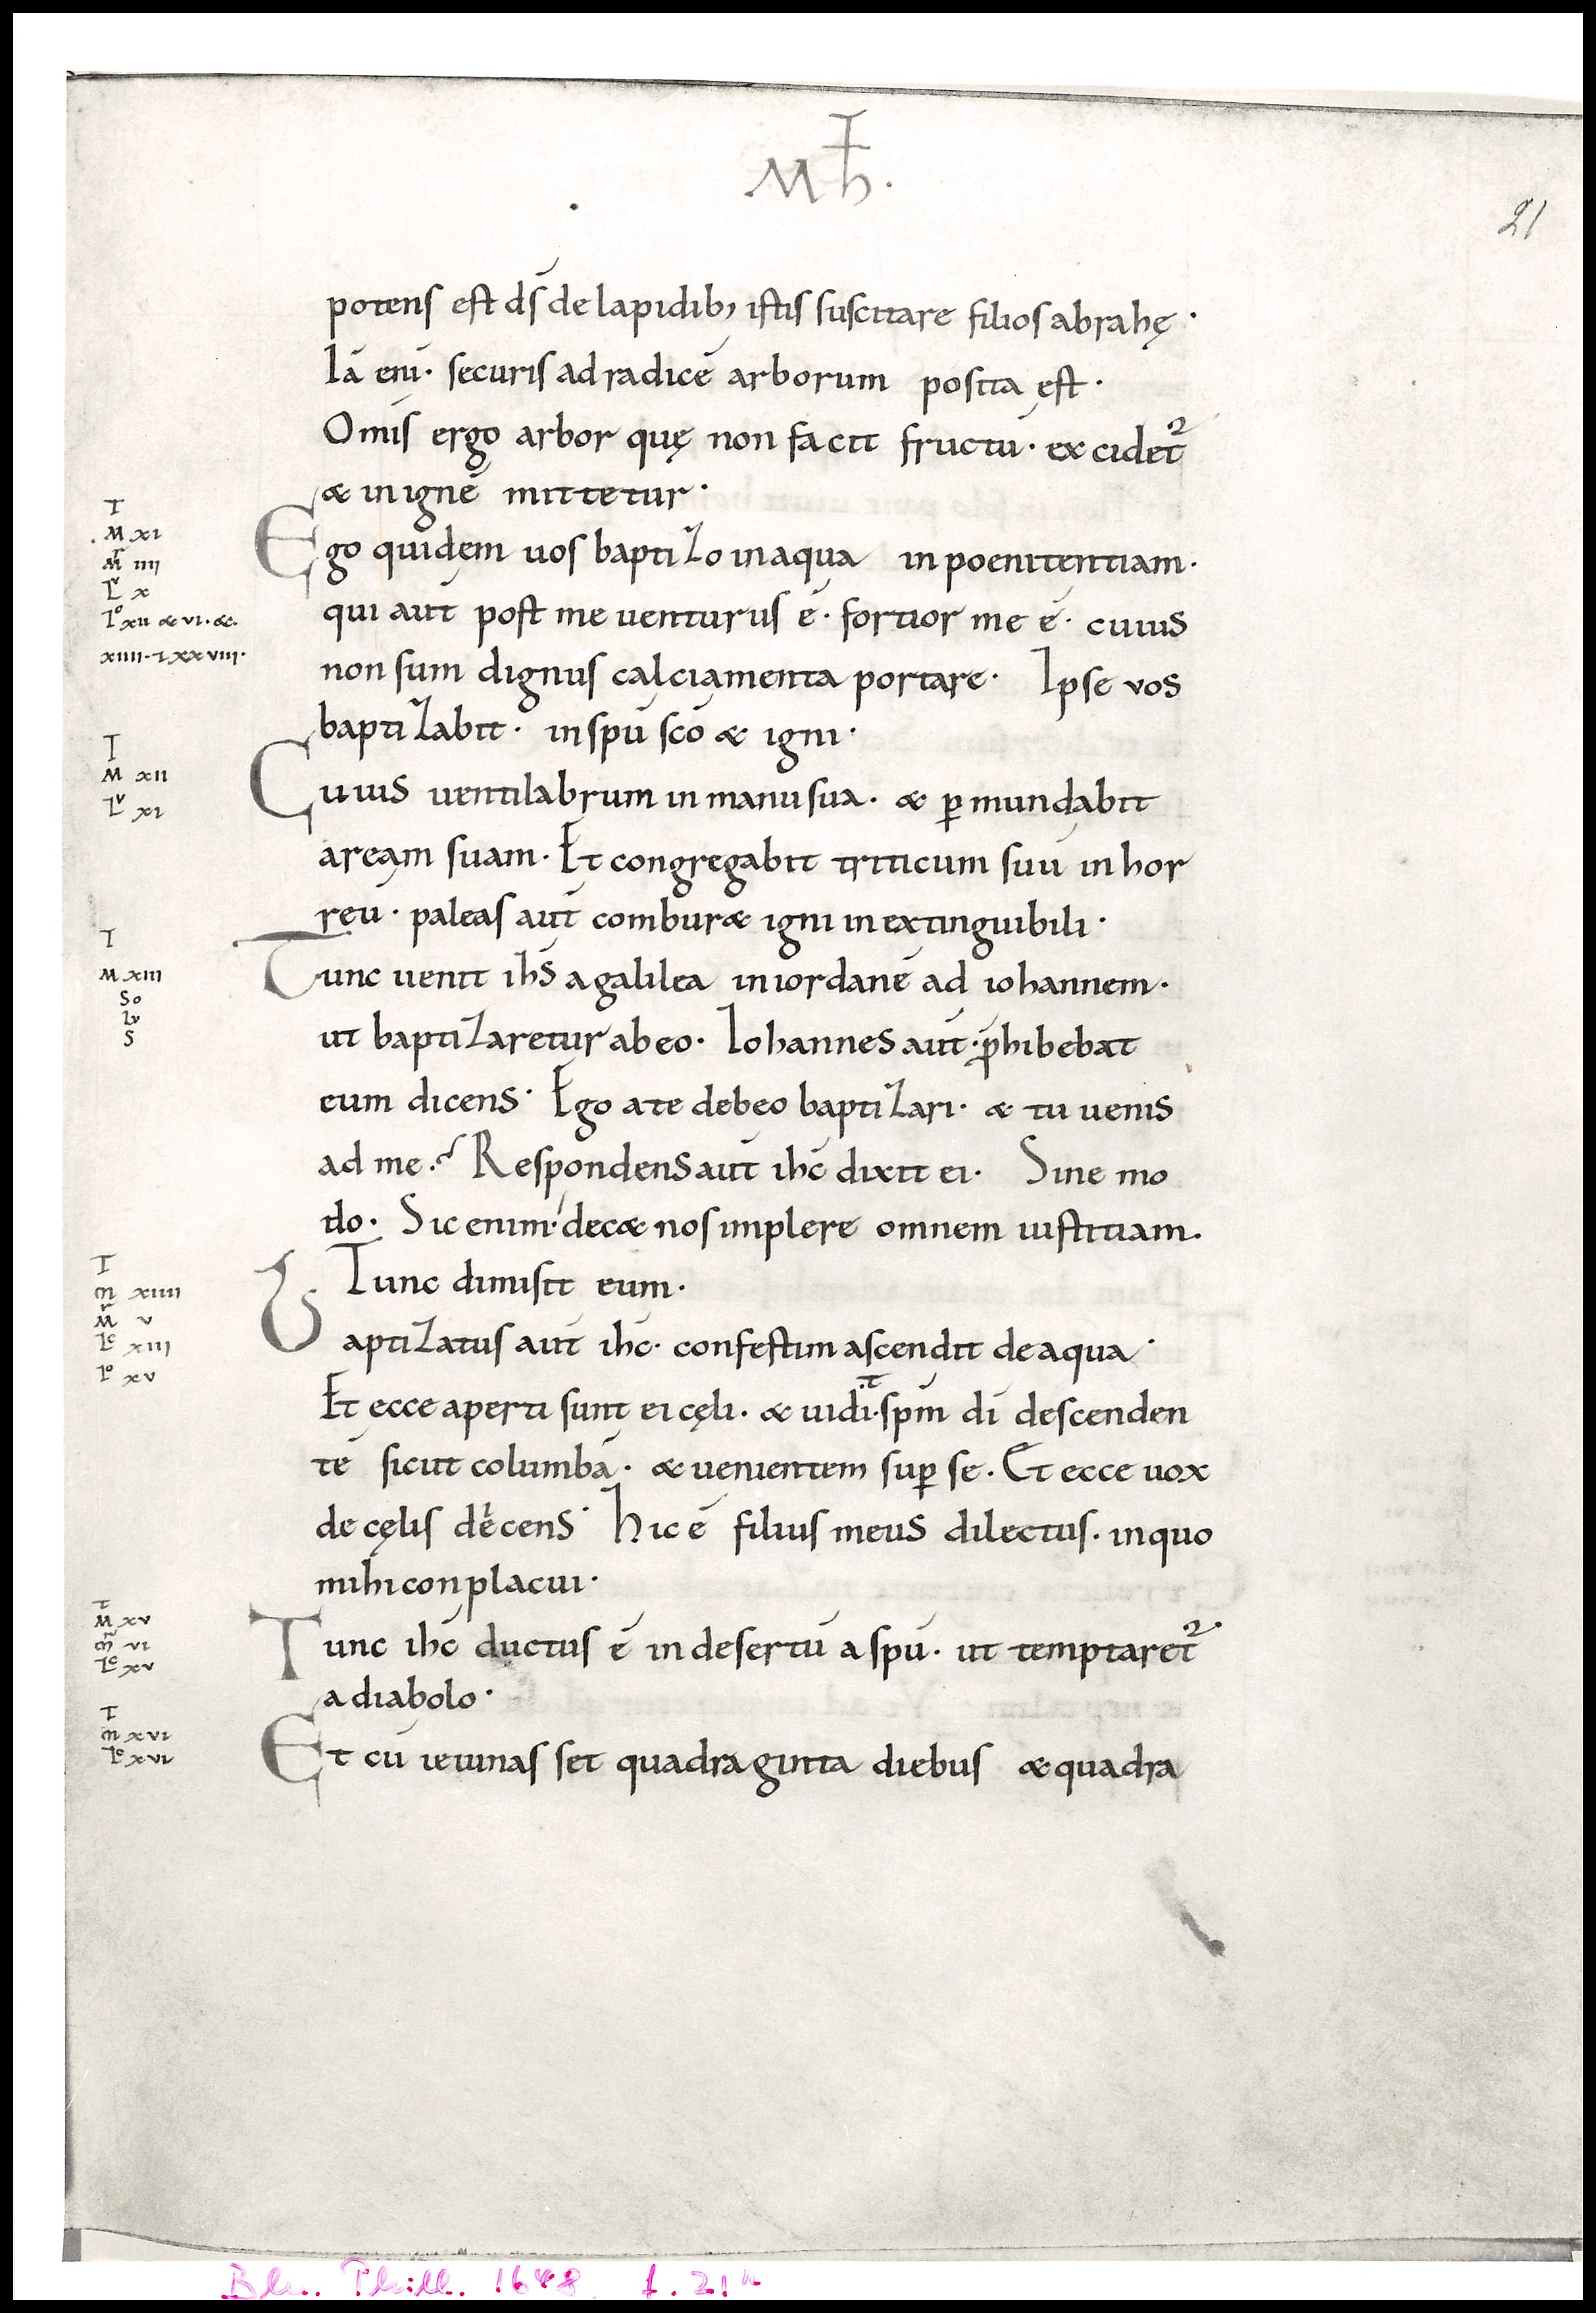 Mtħ.
21
potens est ds̄ de lapidib; istis suscitare filios abrahę ·
Iā eni̅ · securis ad radicē arborum posita est ·
Om̅is ergo arbor quę non facit fructū · excidet̅2
& in ignē mittetur ·
T
M xi
Mr iiii
Lv x
Io xii & vi · &
xiiii · & xxviii ·
Ego quidem uos baptizo in aqua in poenitentiam ·
qui aut̅ post me uenturus ē · fortior me ē · cuius
non sum dignus calciamenta portare · Ipse vos
baptizabit · in spū sc̅o & igni ·
T
M xii
Lv xi
Cuius uentilabrum in manu sua · & p̱mundabit
aream suam · Et congregabit triticum suū in hor
reū · paleas aut̅ combur& igni inextinguibili ·
T
M xiii
So
lv
s
Tunc uenit ih̅s a galilea in iordanē ad iohannem ·
ut baptizaretur ab eo · Iohannes aut̅ · p̱hibebat
eum dicens · Ego a te debeo baptizari · & tu uenis
ad me ·? Respondens aut̅ ih̅c dixit ei · Sine mo
do · Sic enim · dec& nos implere omnem iustitiam.
Tunc dimisit eum ·
T
m xiiii
Mr v
Lc xiii
Io xv
Baptizatus aut̅ ih̅c · confestim ascendit de aqua ·
Et ecce aperti sunt ei cęli · & uidi·t·sp̅m di̅ descenden
tē sicut columbā · & uenientem sup̱ se · Et ecce uox
de cęlis deicens · hic ē filius meus dilectus · in quo
mihi conplacui ·
T
M xv
mr vi
Lc xv
Tunc ih̅c ductus ē in desertū a spū · ut temptaret̅2 ·
a diabolo ·
T
m xvi
Lc xvi
Et cū ieiunasset quadraginta diebus & quadra
Bln. Phill. 1648 f. 21r